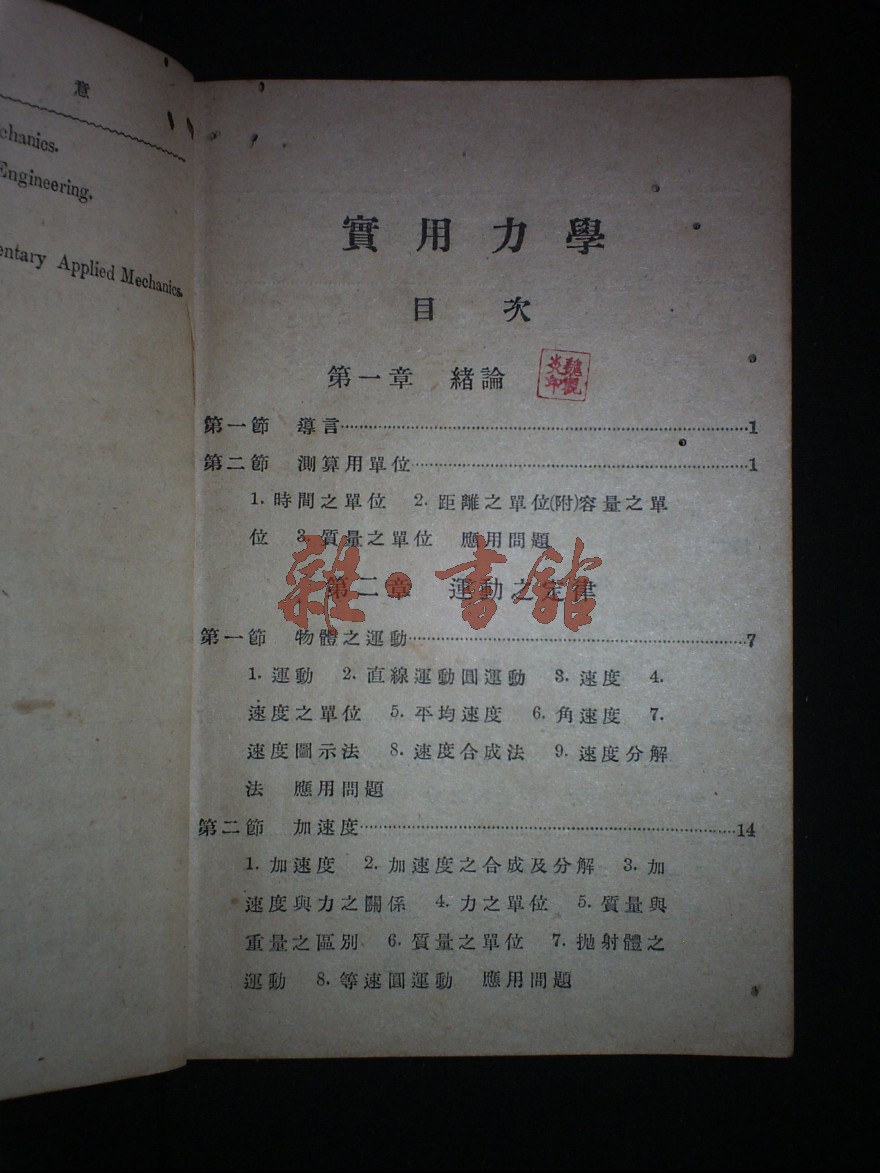 意
chanics.
Engineering.
entary Applied Mechanics.
實用力學
目次
第一章 緒論
第一節 導言 1
第二節 測算用單位 1
1. 時間之單位 2. 距離之單位(附)容量之單
位 3. 質量之單位 應用問題
第二章 運動之定律
雜·書館
第一節 物體之運動 7
1. 運動 2. 直線運動圓運動 3. 速度 4.
速度之單位 5. 平均速度 6. 角速度 7.
速度圖示法 8. 速度合成法 9. 速度分解
法 應用問題
第二節 加速度 14
1. 加速度 2. 加速度之合成及分解 3. 加
速度與力之關係 4. 力之單位 5. 質量與
重量之區別 6. 質量之單位 7. 拋射體之
運動 8. 等速圓運動 應用問題